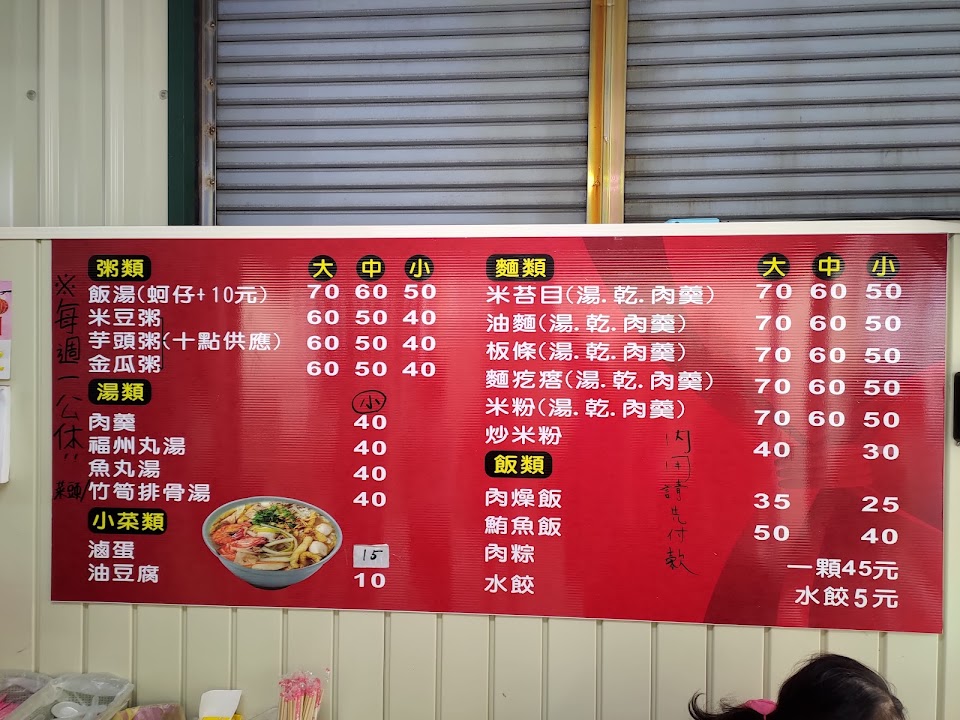 ※每週一公休"
粥類 大 中 小
飯湯(蚵仔+10元) 70 60 50
米豆粥 60 50 40
芋頭粥(十點供應) 60 50 40
金瓜粥 60 50 40
湯類 小
肉羹 40
福州丸湯 40
魚丸湯 40
菜頭/竹筍排骨湯 40
小菜類
滷蛋 15
油豆腐 10
麵類 大 中 小
米苔目(湯.乾.肉羹) 70 60 50
油麵(湯.乾.肉羹) 70 60 50
板條(湯.乾.肉羹) 70 60 50
麵疙瘩(湯.乾.肉羹) 70 60 50
米粉(湯.乾.肉羹) 70 60 50
炒米粉 40 30
飯類
肉燥飯 35 25
鮪魚飯 50 40
肉粽 一顆45元
水餃 水餃5元
內用請先付款